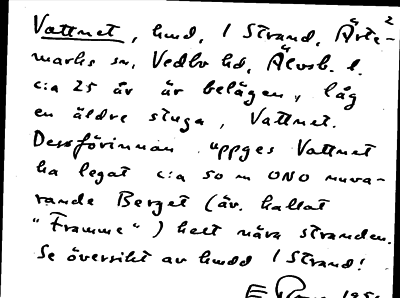 2
Vattnet, hmd, 1 Strand, Ärte-
marks sn, Vedbo hd, Älvsb. l.
c:a 25 år är belägen, låg
en äldre stuga, Vattnet.
Dessförinnan uppges Vattnet
ha legat c:a 50 m ONO nuva-
rande Berget (äv. kallat
"Framme") helt nära stranden.
Se översikt av hmdd 1 Strand!